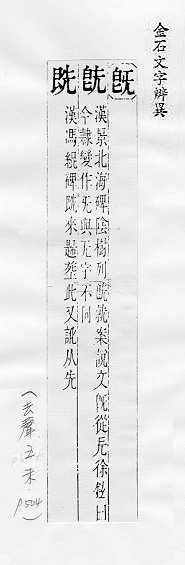 金石文字辨異
旣
旣 漢景北海碑陰樹列旣就案說文旣從旡徐鉉曰
今隸變作旡與无字不同
既 漢馮緄碑既來葬此又訛从先
(去聲五未 P504)